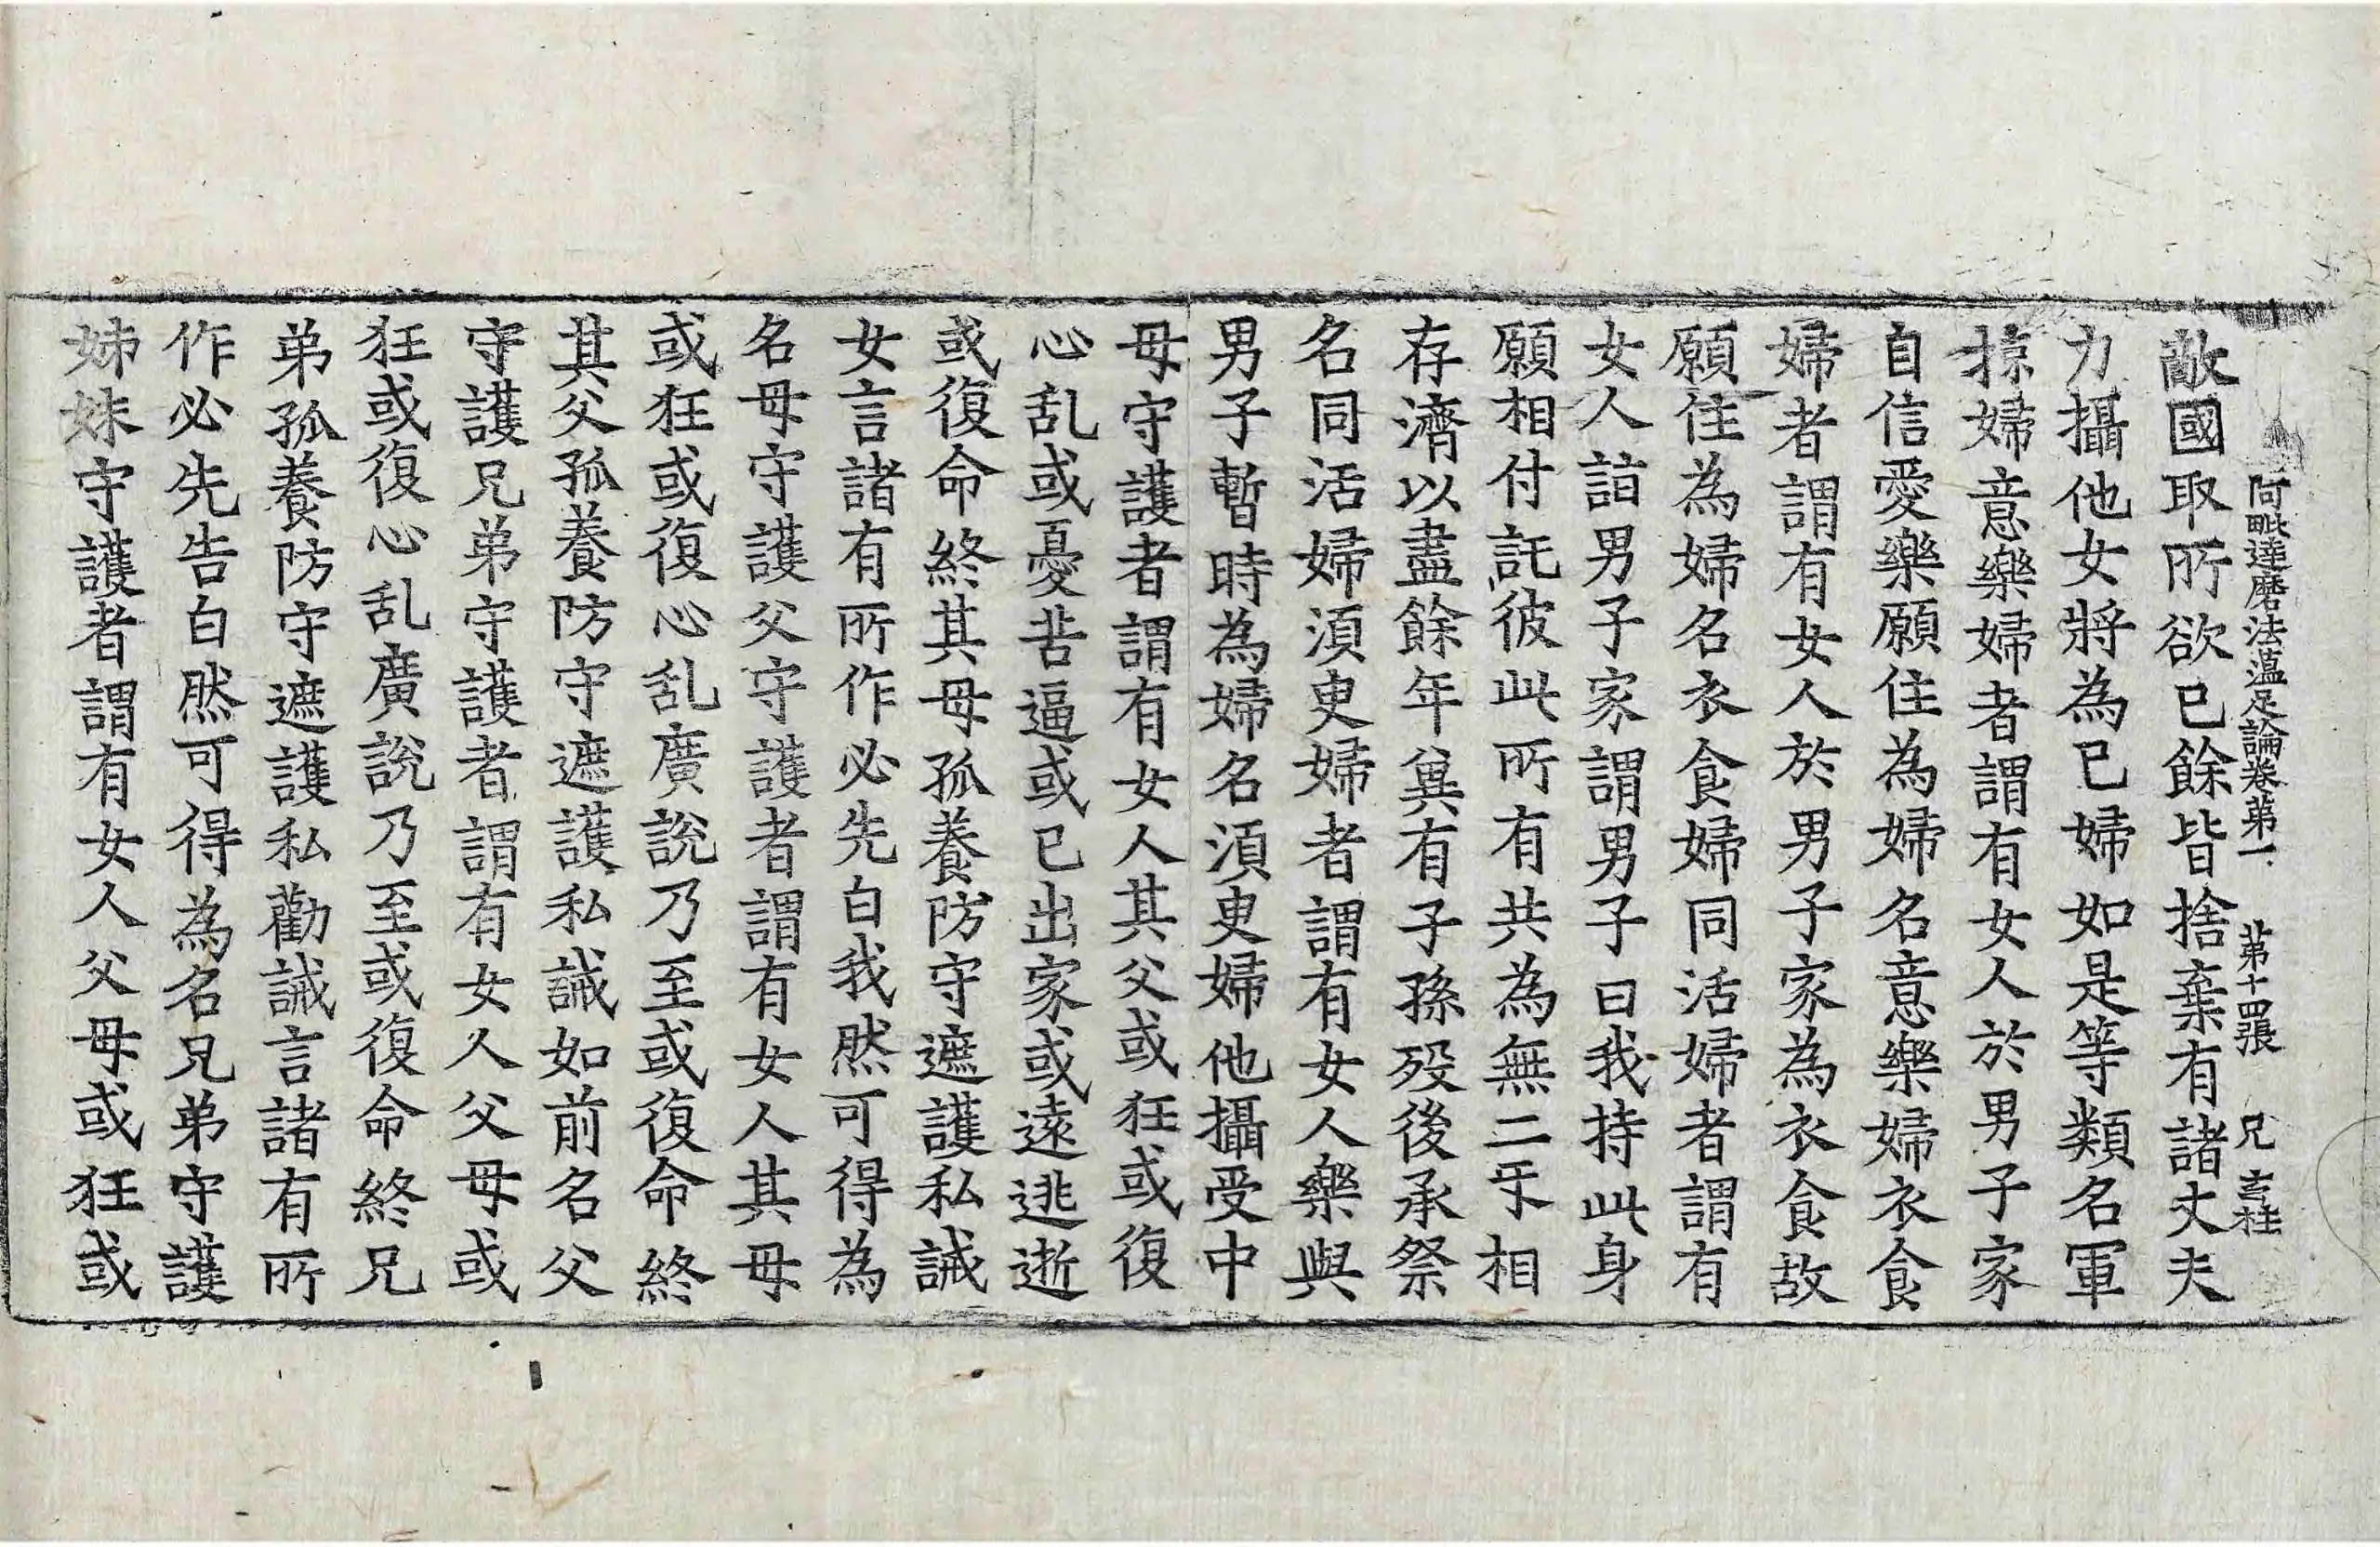 阿毗達磨法薀足論卷苐一 苐十四張 兄 玄桂
敵國取所欲已餘皆捨棄有諸丈夫
力攝他女將為已婦如是等類名軍
掠婦意樂婦者謂有女人於男子家
自信愛樂願住為婦名意樂婦衣食
婦者謂有女人於男子家為衣食故
願住為婦名衣食婦同活婦者謂有
女人詣男子家謂男子曰我持此身
願相付託彼此所有共為無二㸦相
存濟以盡餘年兾有子孫歿後承祭
名同活婦湏臾婦者謂有女人樂與
男子暫時為婦名湏臾婦他攝受中
母守護者謂有女人其父或狂或復
心乱或憂苦逼或已出家或遠逃逝
或復命終其母孤養防守遮護私誡
女言諸有所作必先白我然可得為
名母守護父守護者謂有女人其母
或狂或復心乱廣說乃至或復命終
其父孤養防守遮護私誡如前名父
守護兄弟守護者謂有女人父母或
狂或復心乱廣說乃至或復命終兄
弟孤養防守遮護私勸誡言諸有所
作必先告白然可得為名兄弟守護
姊妹守護者謂有女人父母或狂或